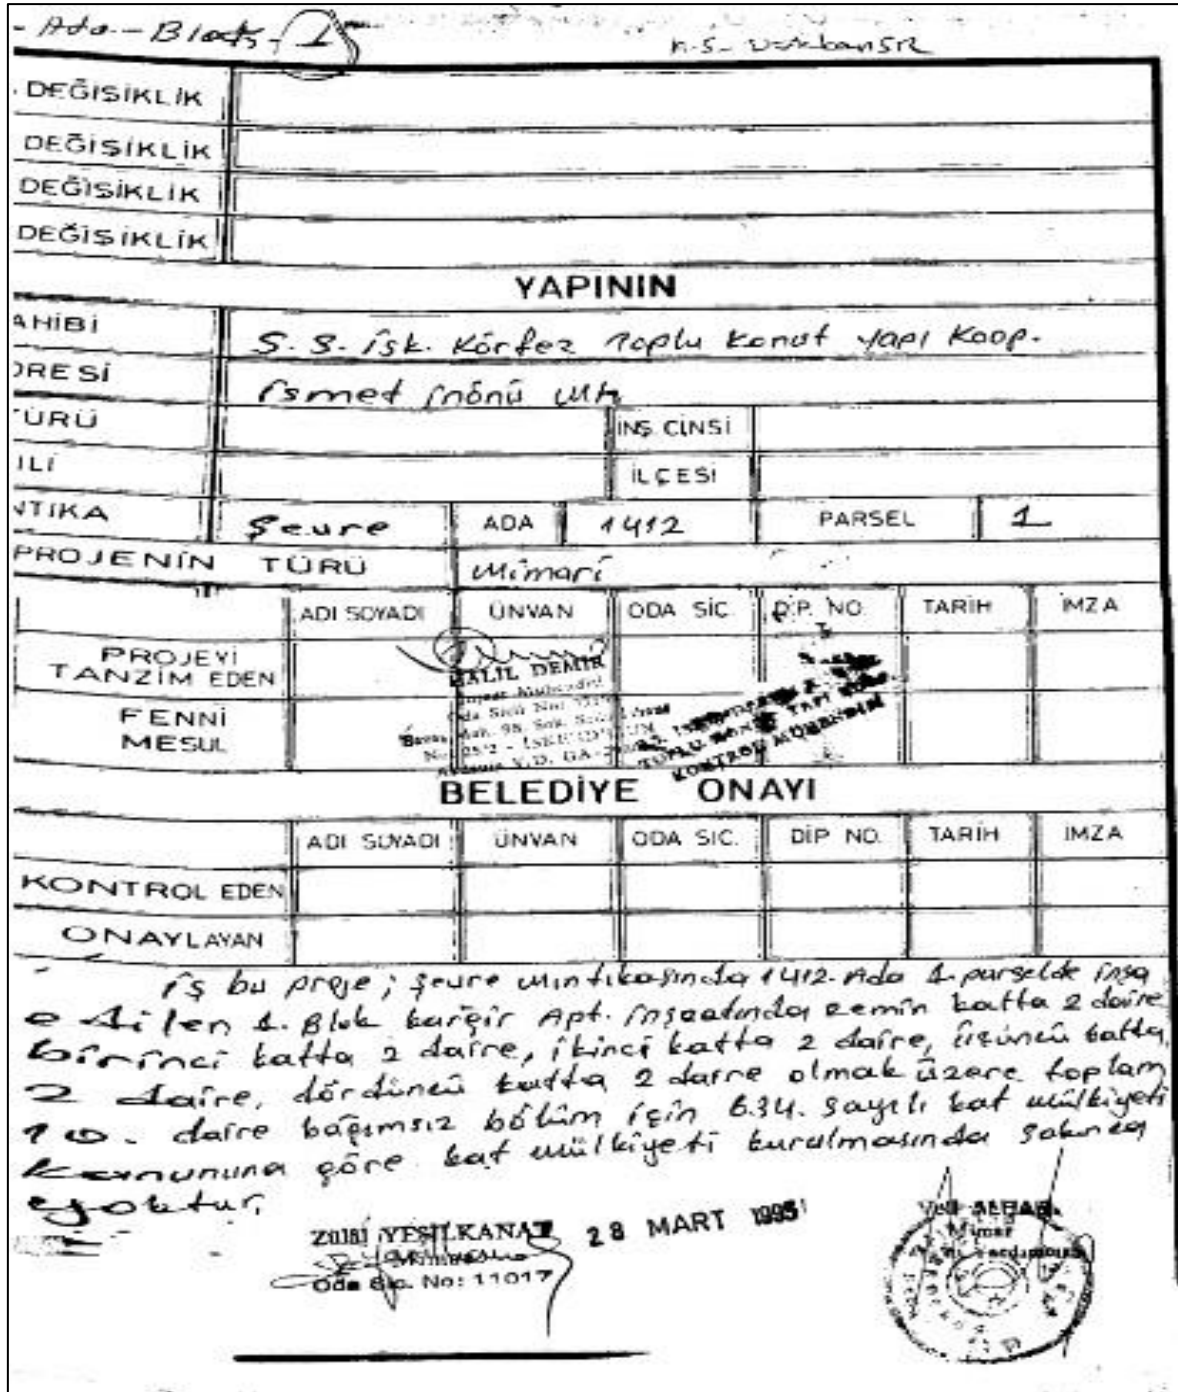 - Ada - Blok - 1
. DEĞİŞİKLİK
DEĞİŞİKLİK
DEĞİŞİKLİK
DEĞİŞİKLİK
YAPININ
AHİBİ S.S. İsk. Körfez Toplu Konut Yapı Koop.
DRESİ İsmet İnönü Mh
TÜRÜ İNŞ. CİNSİ
İLİ İLÇESİ
NTIKA Şevre ADA 1412 PARSEL 1
PROJENİN TÜRÜ Mimari
ADI SOYADI ÜNVAN ODA SİC. DİP. NO. TARİH İMZA
PROJEYİ TANZİM EDEN
FENNİ MESUL
HALİL DEMİR
İnşaat Mühendisi
Oda Sicil No:
No: 25/2 - İSKENDERUN
TOPLU KONUT YAPI KOOP.
KONTROL MÜHENDİSİ
BELEDİYE ONAYI
ADI SOYADI ÜNVAN ODA SİC. DİP NO. TARİH İMZA
KONTROL EDEN
ONAYLAYAN
İş bu proje; Şevre mıntıkasında 1412. Ada 1. parselde inşa
edilen 1. Blok kargir Apt. inşaatında zemin katta 2 daire
birinci katta 2 daire, ikinci katta 2 daire, üçüncü katta,
2 daire, dördüncü katta 2 daire olmak üzere toplam
10. daire bağımsız bölüm için 634. sayılı kat mülkiyeti
kanununa göre kat mülkiyeti kurulmasında sakınca
yoktur.
YEŞİLKANAT 28 MART 1995
Mimar
Oda Sic. No: 11017
Mimar